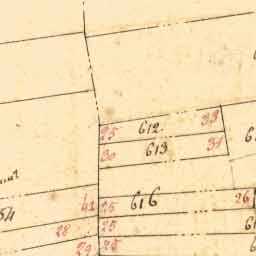 25 612 33
30 613 31
42 25 616 26
54
28 25 61
29 25